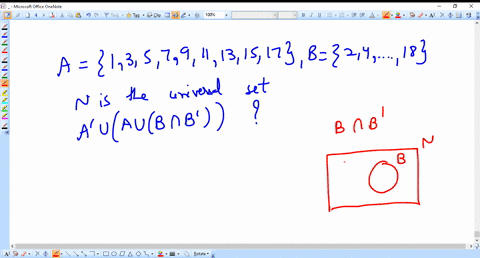 Microsoft Office OneNote
100%
A = {1,3,5,7,9,11,13,15,17}, B = {2,4,...,18}
N is the universal set
A' ∪ (A ∪ (B ∩ B')) ?
B ∩ B'
N
B
Rotate